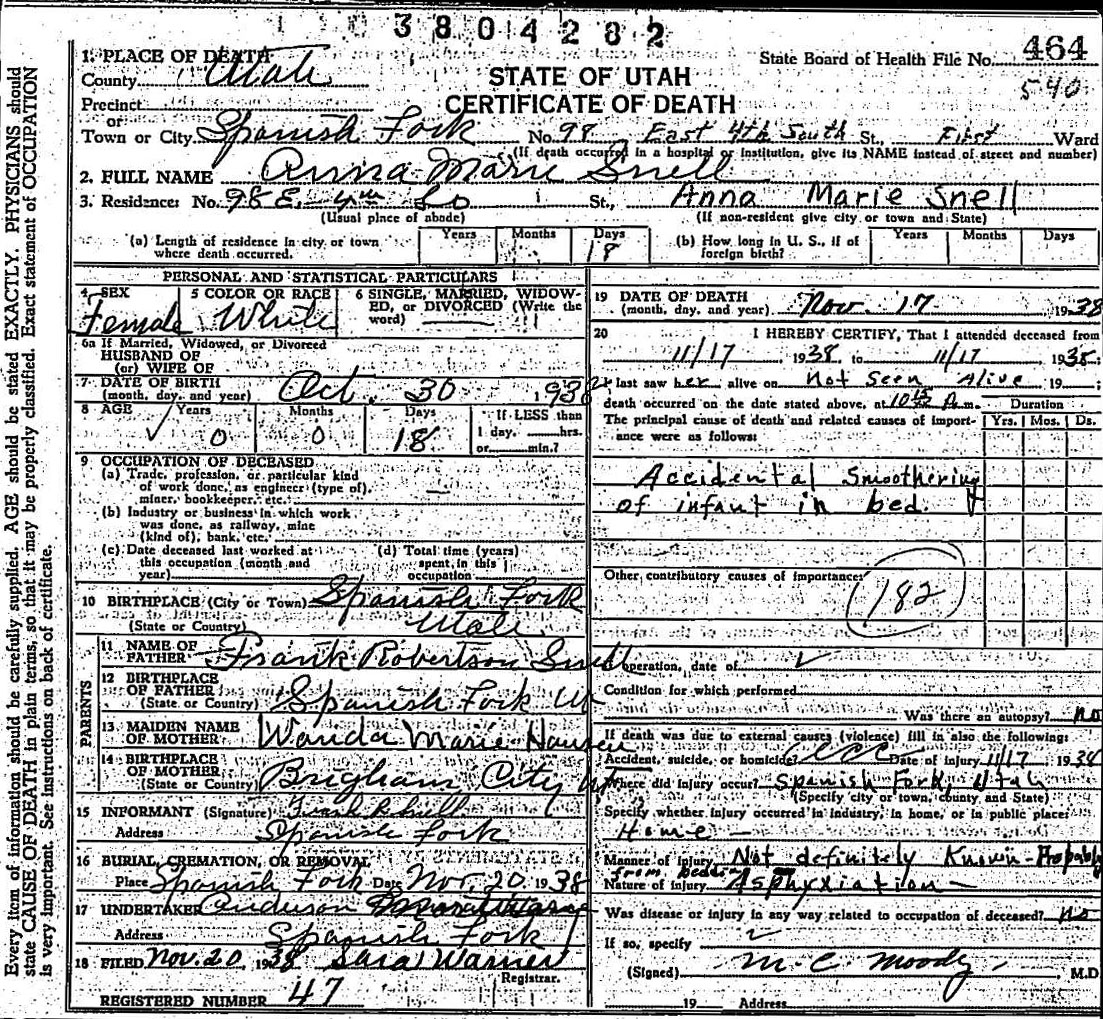 3804282
1. PLACE OF DEATH
State Board of Health File No. 464
County Utah
STATE OF UTAH
540
Precinct
CERTIFICATE OF DEATH
or
Town or City Spanish Fork No. 98 East 4th South St., First Ward
(If death occurred in a hospital or institution, give its NAME instead of street and number)
2. FULL NAME Anna Marie Snell
3. Residence: No. 98 E. 4th So St., Anna Marie Snell
(Usual place of abode) (If non-resident give city or town and State)
(a) Length of residence in city or town where death occurred. Years Months Days 18
(b) How long in U. S., if of foreign birth? Years Months Days
PERSONAL AND STATISTICAL PARTICULARS
4 SEX Female
5 COLOR OR RACE White
6 SINGLE, MARRIED, WIDOWED, or DIVORCED (Write the word)
6a If Married, Widowed, or Divorced
HUSBAND OF
(or) WIFE OF
7 DATE OF BIRTH (month, day, and year) Oct. 30 1938
8 AGE Years 0 Months 0 Days 18 If LESS than 1 day, hrs. or min.?
9 OCCUPATION OF DECEASED
(a) Trade, profession, or particular kind
of work done, as engineer (type of),
miner, bookkeeper, etc.
(b) Industry or business in which work
was done, as railway, mine
(kind of), bank, etc.
(c) Date deceased last worked at this occupation (month and year)
(d) Total time (years) spent in this occupation
10 BIRTHPLACE (City or Town) Spanish Fork
(State or Country) Utah
PARENTS
11 NAME OF FATHER Frank Robertson Snell
12 BIRTHPLACE OF FATHER (State or Country) Spanish Fork Ut
13 MAIDEN NAME OF MOTHER Wanda Marie Hansen
14 BIRTHPLACE OF MOTHER (State or Country) Brigham City Ut
15 INFORMANT (Signature) Frank R Snell
Address Spanish Fork
16 BURIAL, CREMATION, OR REMOVAL
Place Spanish Fork Date Nov. 20 1938
17 UNDERTAKER Anderson
Address Spanish Fork
18 FILED Nov. 20 1938 Sara Warner
Registrar.
REGISTERED NUMBER 47
19 DATE OF DEATH (month, day, and year) Nov. 17 1938
20 I HEREBY CERTIFY, That I attended deceased from
11/17, 1938 to 11/17 1938;
last saw her alive on Not Seen Alive 19 ;
death occurred on the date stated above, at 10 A.m. Duration
The principal cause of death and related causes of importance were as follows: Yrs. Mos. Ds.
Accidental Smoothering
of infant in bed.
Other contributory causes of importance:
182
operation, date of
Condition for which performed
Was there an autopsy? no
If death was due to external causes (violence) fill in also the following:
Accident, suicide, or homicide? Acc Date of injury 11/17 1938
Where did injury occur? Spanish Fork, Utah
(Specify city or town, county and State)
Specify whether injury occurred in industry, in home, or in public place:
Home
Manner of injury Not definitely Known - Probably
from bedding
Nature of injury Asphyxiation
Was disease or injury in any way related to occupation of deceased? no
If so, specify
(Signed) M. C. Moody M.D
19 Address
Every item of information should be carefully supplied. AGE should be stated EXACTLY. PHYSICIANS should
state CAUSE OF DEATH in plain terms, so that it may be properly classified. Exact statement of OCCUPATION
is very important. See instructions on back of certificate.